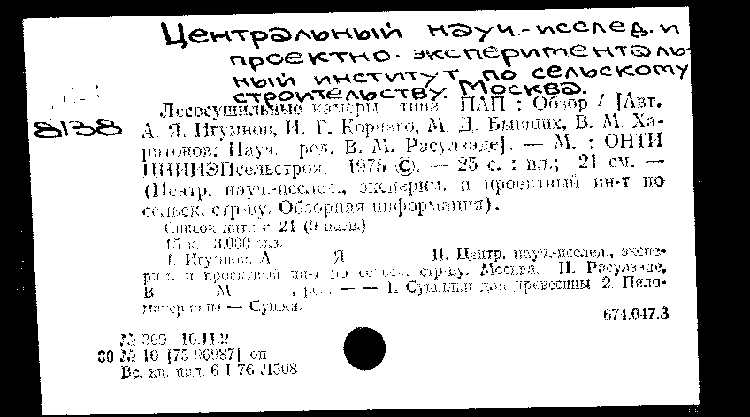 Центральный науч.-исслед. и
проектно-эксперименталь
ный институт по сельскому
строительству. Москва.
8138
Лесосушильные камеры типа ПАП : Обзор / [Авт.
А. Я. Игумнов, И. Г. Корчаго, М. Д. Бывших, В. М. Ха-
ритонов; Науч. ред. В. М. Расулзаде]. — М. : ОНТИ
ЦНИИЭПсельстроя, 1975 ©. — 25 с. : ил.; 21 см. —
(Центр. науч.-исслед., эксперим. и проектный ин-т по
сельск. стр-ву. Обзорная информация).
Список лит.: с. 21 (9 назв.)
15 к. 3.000 экз.
I. Игумнов, А Я II. Центр. науч.-исслед., экспе-
рим. и проектный ин-т по сельск. стр-ву. Москва. II. Расулзаде,
В М , ред. — — 1. Сушилки для древесины 2. Пило-
материалы — Сушка.
674.047.3
№ 309 10.11.2
80 № 10 [75-96987] оп
Вс. кн. пал. 6 I 76 Л308